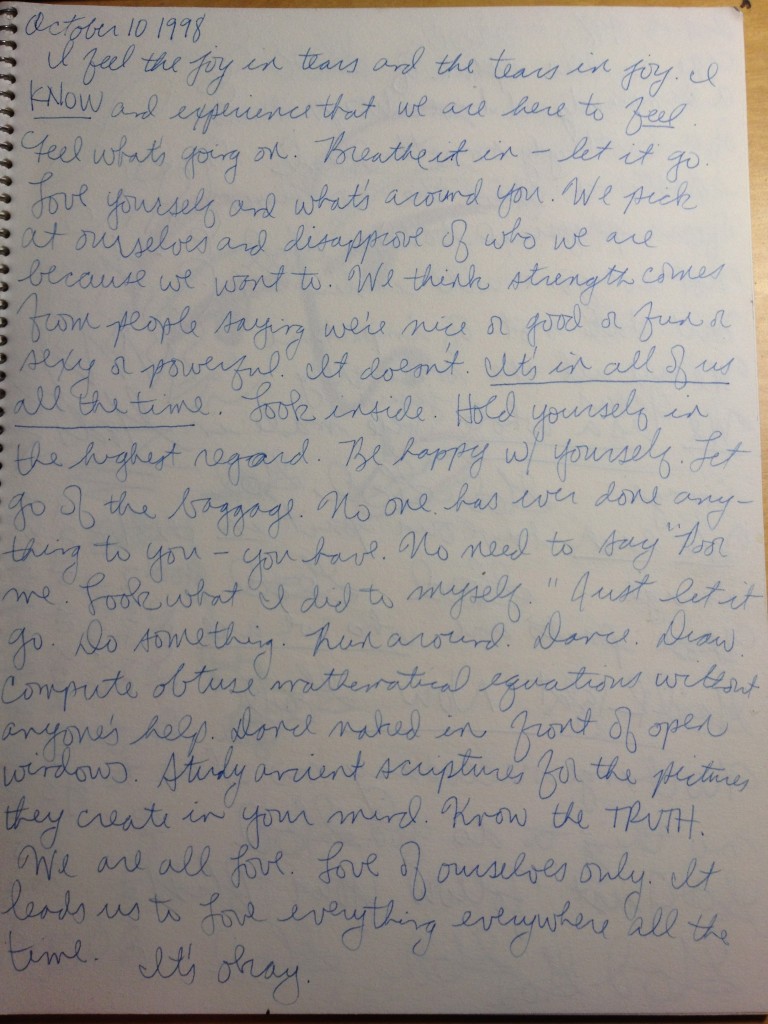 October 10 1998
I feel the joy in tears and the tears in joy. I
KNOW and experience that we are here to feel.
Feel what's going on. Breathe it in – let it go.
Love yourself and what's around you. We pick
at ourselves and disapprove of who we are
because we want to. We think strength comes
from people saying we're nice or good or fun or
sexy or powerful. It doesn't. It's in all of us
all the time. Look inside. Hold yourself in
the highest regard. Be happy w/ yourself. Let
go of the baggage. No one has ever done any-
thing to you – you have. No need to say "Poor
me. Look what I did to myself." Just let it
go. Do something. Run around. Dance. Draw.
Compute obtuse mathematical equations without
anyone's help. Dance naked in front of open
windows. Study ancient scriptures for the pictures
they create in your mind. Know the TRUTH.
We are all Love. Love of ourselves only. It
leads us to Love everything everywhere all the
time. It's okay.